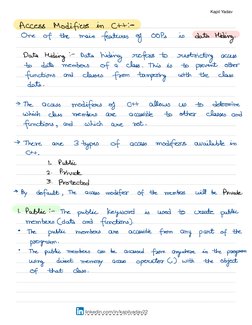 Kapil Yadav
Access Modifiers in C++:-
One of the main features of OOPs is data Hiding.
Data Hiding :- Data hiding refers to restricting access
to data members of a class. This is to prevent other
functions and classes from tampering with the class
data.
→ The access modifiers of C++ allows us to determine
which class members are accessible to other classes and
functions, and which are not.
→ There are 3 types of access modifiers available in
C++.
1. Public
2. Private
3. Protected
→ By default, The access modifier of the members will be Private
1. Public :- The public keyword is used to create public
members (data and functions).
• The public members are accessible from any part of the
program.
• The public members can be accessed from anywhere in the program
using direct member access operator (.) with the object
of that class.